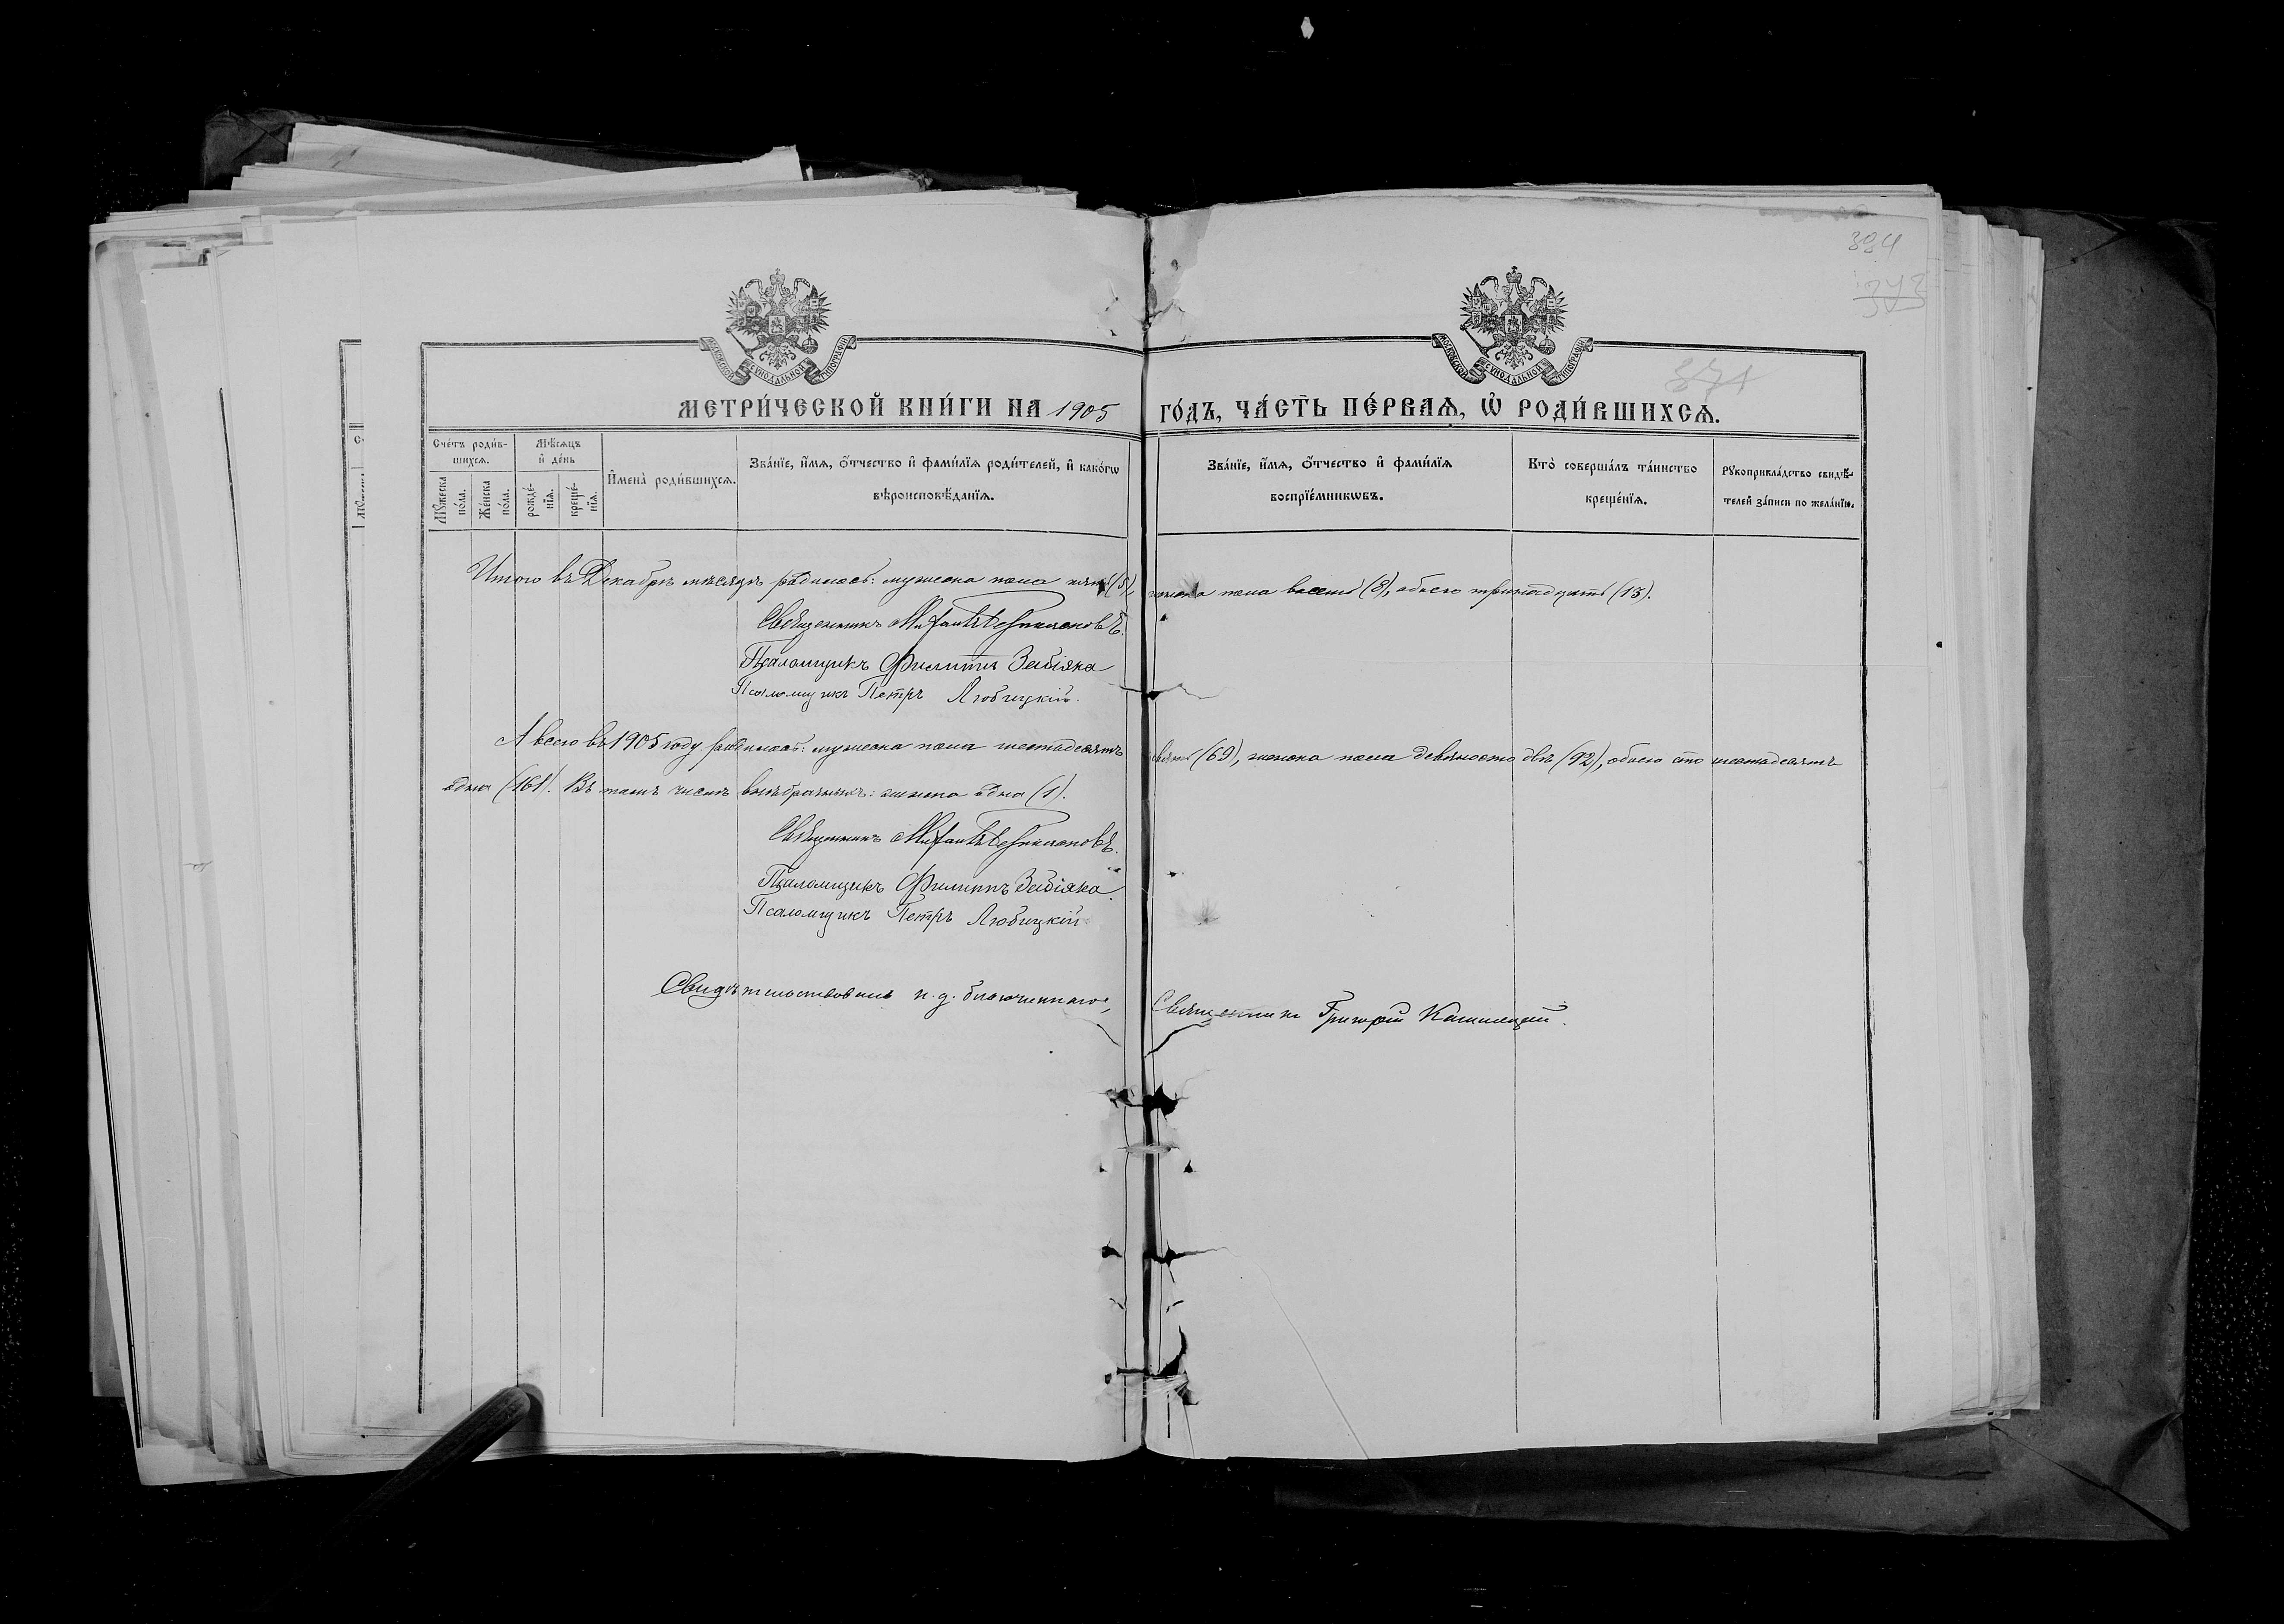 394
372
371
МОСКОВСКОЙ СУНОДАЛЬНОЙ ТИПОГРАФІИ
МОСКОВСКОЙ СУНОДАЛЬНОЙ ТИПОГРАФІИ
МЕТРИ́ЧЕСКОЙ КНИ́ГИ НА 1905 ГО́ДЪ, ЧА́СТЬ ПЕ́РВАѦ, Ѡ҆ РОДИ́ВШИХСѦ.
Сче́тъ роди́вшихсѧ.
Мꙋ́жеска по́ла.
Же́нска по́ла.
Мѣ́сѧцъ и҆ де́нь
рожде́нїѧ.
креще́нїѧ.
И҆мена̀ роди́вшихсѧ.
Зва́нїе, и҆́мѧ, ѻ҆́тчество и҆ фами́лїѧ роди́телей, и҆ како́гѡ
вѣроисповѣ́данїѧ.
Зва́нїе, и҆́мѧ, ѻ҆́тчество и҆ фами́лїѧ
воспрїе́мникѡвъ.
Кто̀ соверша́лъ та́инство
креще́нїѧ.
Рꙋкоприкла́дство свидѣ́телей за́писи по жела́нїю.
Итого въ Декабрѣ мѣсяцѣ родилось: мужеска пола пять (5), женска пола восемь (8), обоего тринадцать (13).
Священникъ
Псаломщикъ Филиппъ Забіяка
Псаломщикъ Петръ Любицкій.
А всего въ 1905 году родилось: мужеска пола шестьдесятъ девять (69), женска пола девяносто двѣ (92), обоего сто шестьдесятъ
одна (161). Въ томъ числѣ внѣбрачныхъ: женска одна (1).
Священникъ
Псаломщикъ Филиппъ Забіяка.
Псаломщикъ Петръ Любицкій
Свидѣтельствовалъ и. д. благочиннаго, Священникъ Григорій